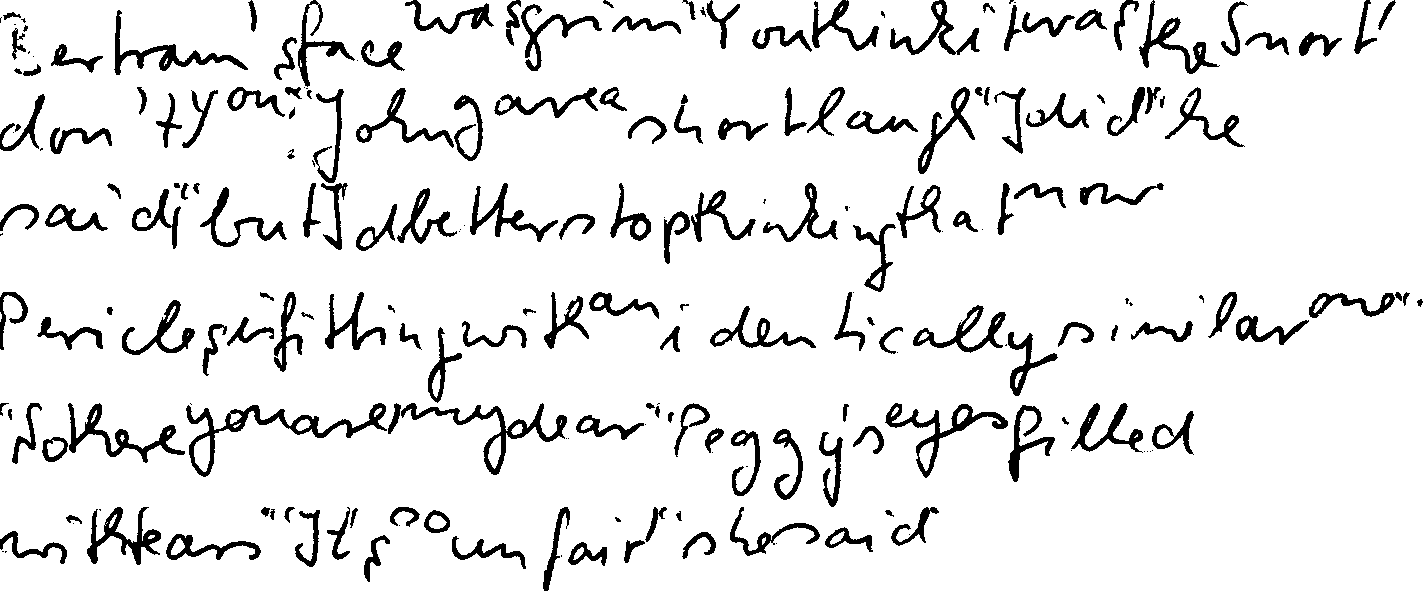 Bertram's face was grim "You think it was the Snort'
don't you?" John gave a short laugh "I did" he
said "but I'd better stop thinking that now
Pericles is fitting with an identically similar one".
"So there you are my dear" Peggy's eyes filled
with tears "It's so unfair" she said